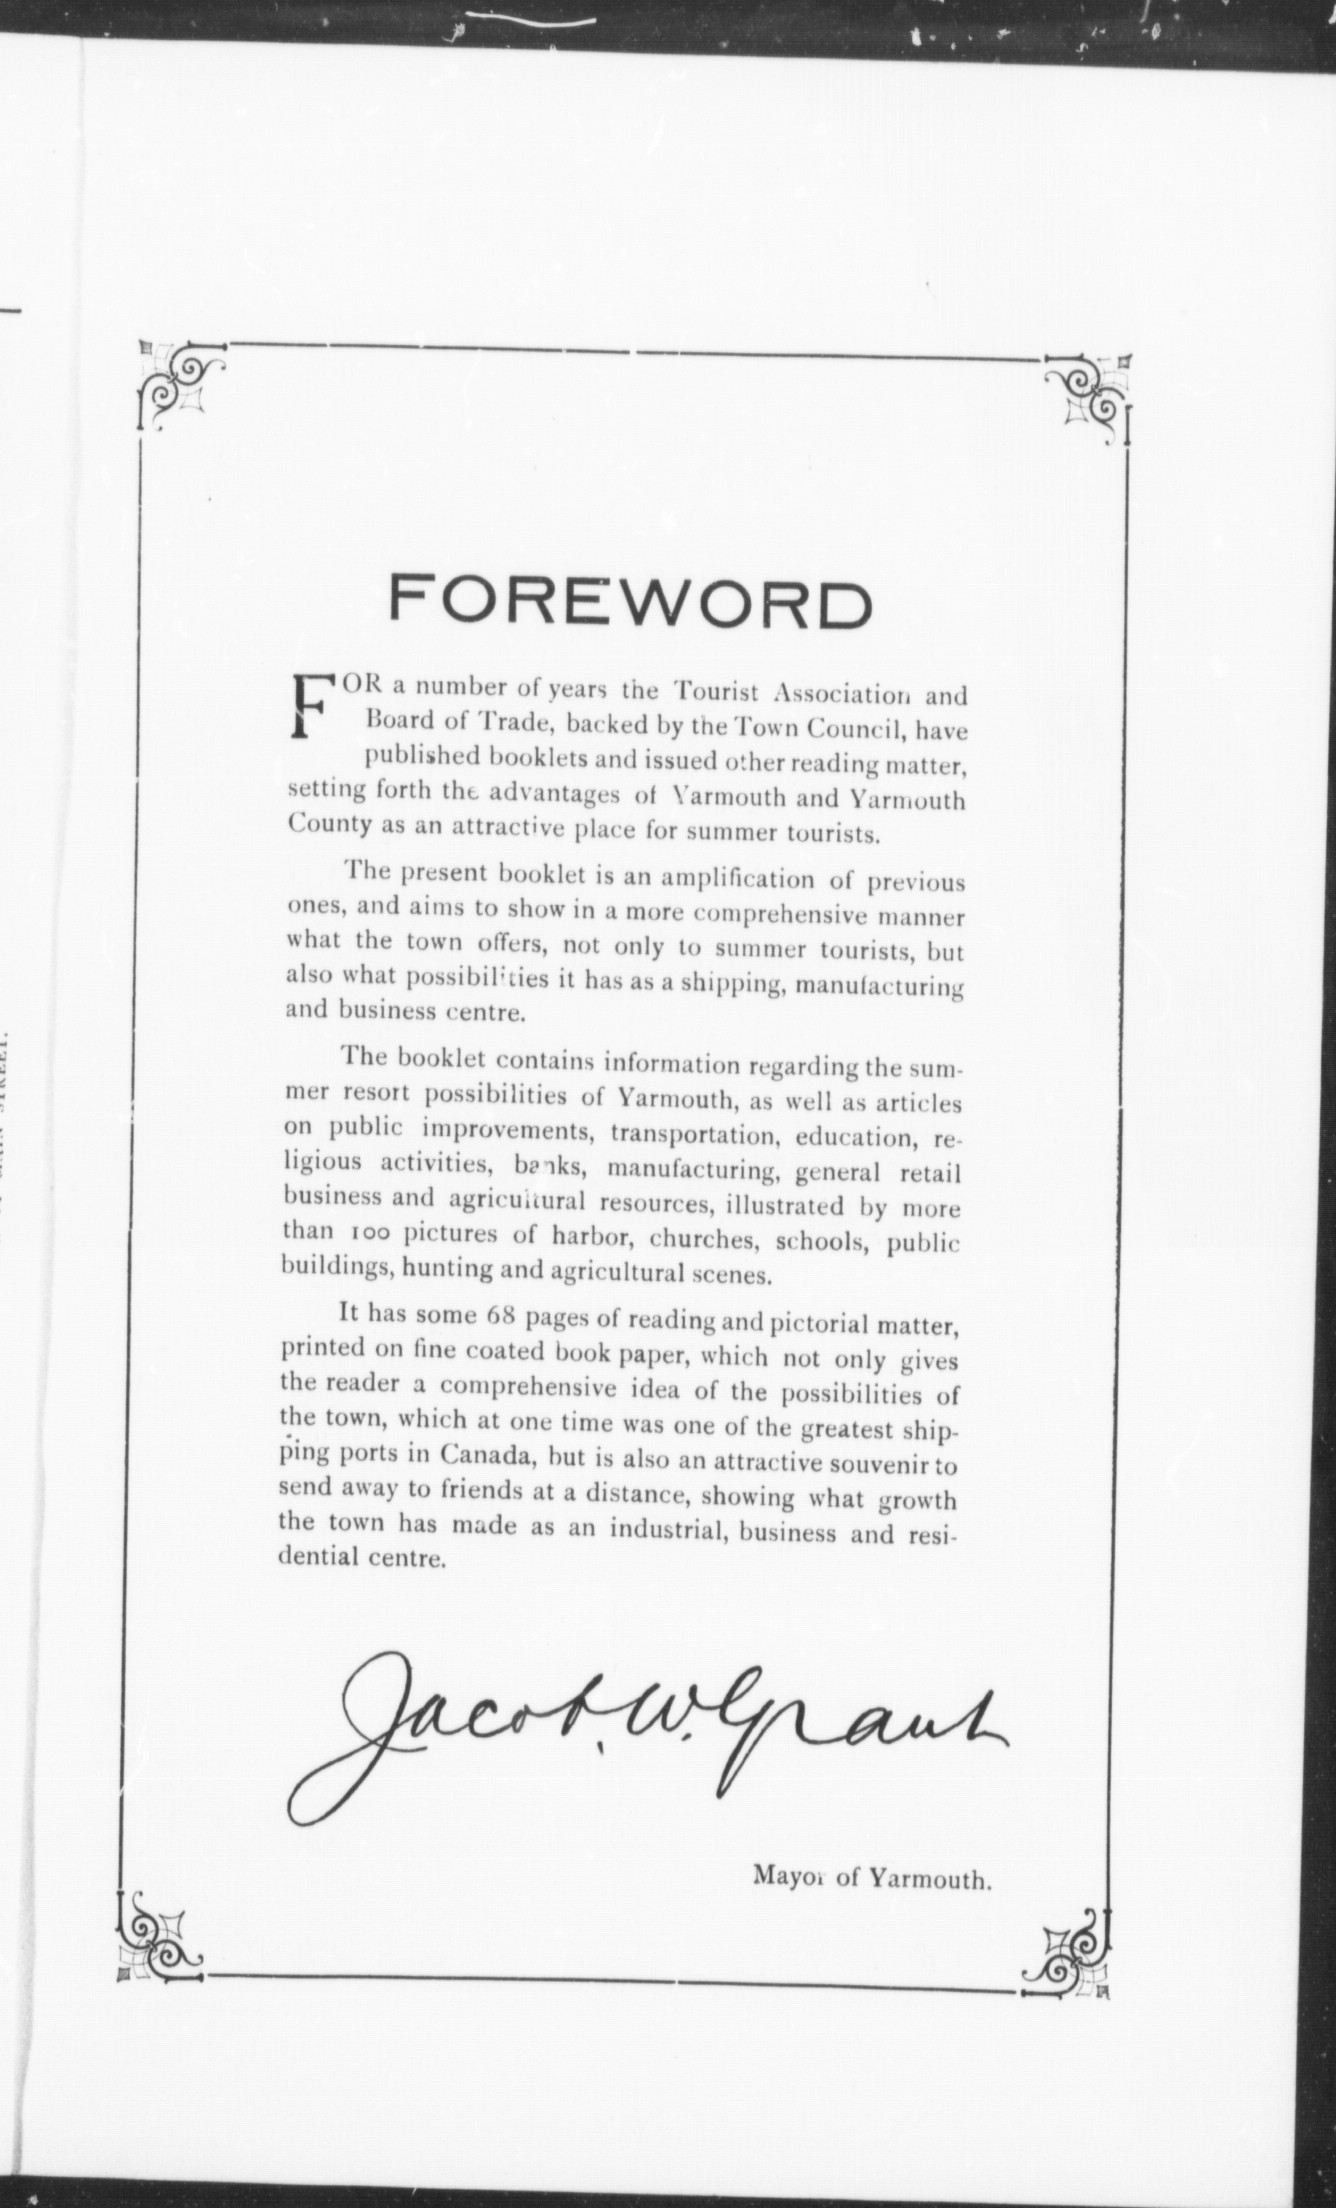 FOREWORD
FOR a number of years the Tourist Association and
Board of Trade, backed by the Town Council, have
published booklets and issued other reading matter,
setting forth the advantages of Yarmouth and Yarmouth
County as an attractive place for summer tourists.
The present booklet is an amplification of previous
ones, and aims to show in a more comprehensive manner
what the town offers, not only to summer tourists, but
also what possibilities it has as a shipping, manufacturing
and business centre.
The booklet contains information regarding the sum-
mer resort possibilities of Yarmouth, as well as articles
on public improvements, transportation, education, re-
ligious activities, banks, manufacturing, general retail
business and agricultural resources, illustrated by more
than 100 pictures of harbor, churches, schools, public
buildings, hunting and agricultural scenes.
It has some 68 pages of reading and pictorial matter,
printed on fine coated book paper, which not only gives
the reader a comprehensive idea of the possibilities of
the town, which at one time was one of the greatest ship-
ping ports in Canada, but is also an attractive souvenir to
send away to friends at a distance, showing what growth
the town has made as an industrial, business and resi-
dential centre.
Jacob. W. Grant
Mayor of Yarmouth.